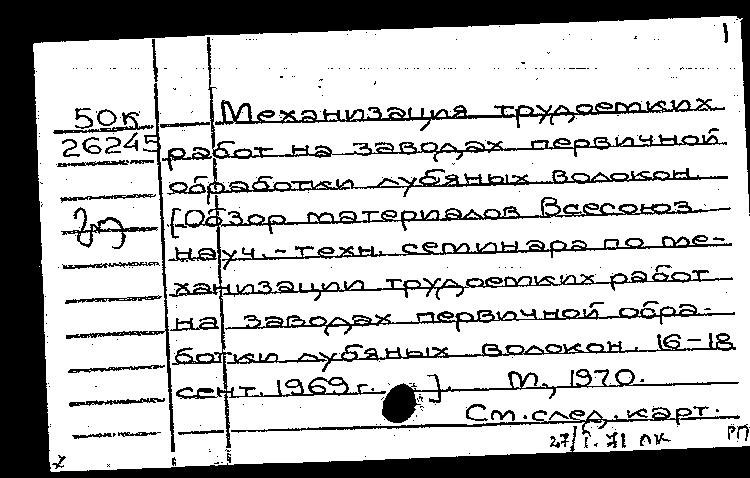 1
50к
26245
Механизация трудоемких
работ на заводах первичной
обработки лубяных волокон
[Обзор материалов Всесоюз.
науч.-техн. семинара по ме-
ханизации трудоемких работ
на заводах первичной обра-
ботки лубяных волокон. 16-18
сент. 1969 г. ]. М., 1970.
См. след. карт.
27/I. 71 пк РП